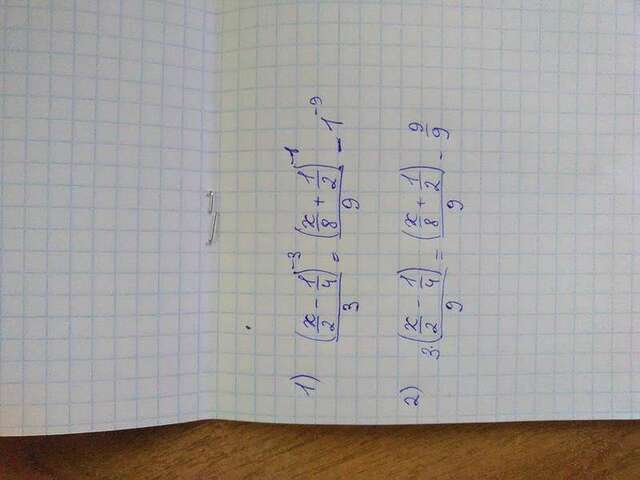 1) \frac{(\frac{x}{2} - \frac{1}{4})^{-3}}{3} = \frac{(\frac{x}{8} + \frac{1}{2})^{-1}}{9} - 1^{-9}
2) \frac{3 \cdot (\frac{x}{2} - \frac{1}{4})}{9} = \frac{(\frac{x}{8} + \frac{1}{2})}{9} - \frac{9}{9}